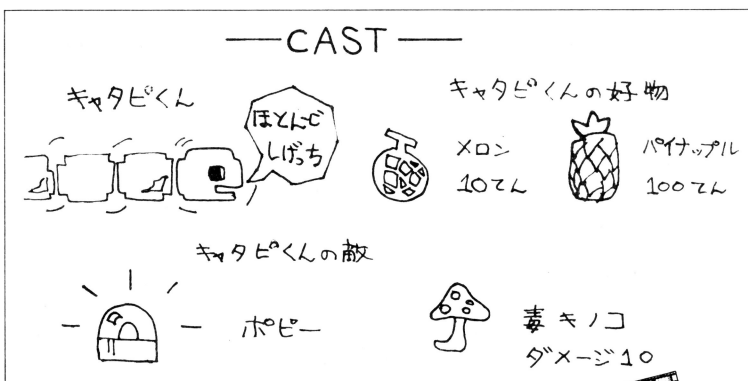 CAST
キャタピくん
ほとんど
しげっち
キャタピくんの好物
メロン
10てん
パイナップル
100てん
キャタピくんの敵
ポピー
毒キノコ
ダメージ10